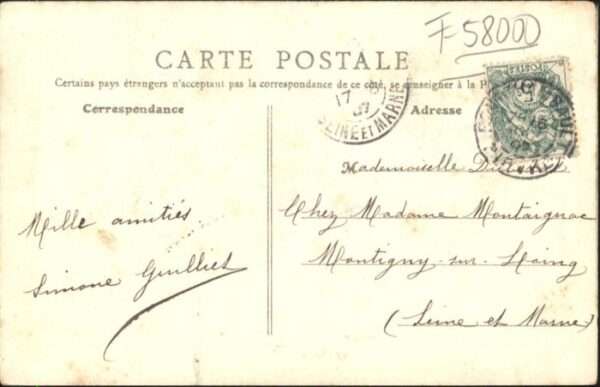 F 58000
CARTE POSTALE
Certains pays étrangers n'acceptant pas la correspondance de ce côté, se renseigner à la P
Correspondance
Adresse
17
SEINE ET MARNE
Mademoiselle D
Mille amitiés
Simone
Chez Madame Montaignac
Montigny-sur-Loing
(Seine et Marne)